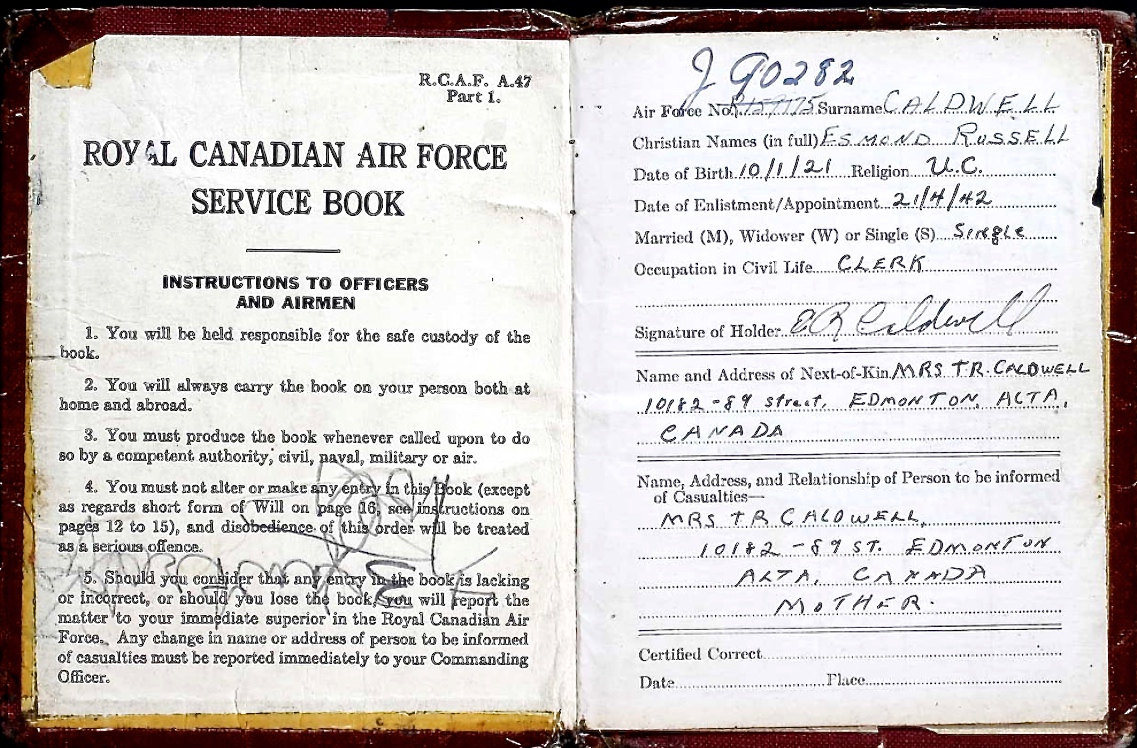 R.C.A.F. A.47
Part 1.
ROYAL CANADIAN AIR FORCE
SERVICE BOOK
INSTRUCTIONS TO OFFICERS
AND AIRMEN
1. You will be held responsible for the safe custody of the
book.
2. You will always carry the book on your person both at
home and abroad.
3. You must produce the book whenever called upon to do
so by a competent authority, civil, naval, military or air.
4. You must not alter or make any entry in this Book (except
as regards short form of Will on page 16, see instructions on
pages 12 to 15), and disobedience of this order will be treated
as a serious offence.
5. Should you consider that any entry in the book is lacking
or incorrect, or should you lose the book, you will report the
matter to your immediate superior in the Royal Canadian Air
Force. Any change in name or address of person to be informed
of casualties must be reported immediately to your Commanding
Officer.
J 90282
Air Force No. Surname CALDWELL
Christian Names (in full) ESMOND RUSSELL
Date of Birth 10/1/21 Religion U.C.
Date of Enlistment/Appointment 21/4/42
Married (M), Widower (W) or Single (S) Single
Occupation in Civil Life CLERK
Signature of Holder E R Caldwell
Name and Address of Next-of-Kin MRS T.R. CALDWELL
10182 - 89 street, EDMONTON, ALTA,
CANADA
Name, Address, and Relationship of Person to be informed
of Casualties—
MRS T R CALDWELL,
10182 - 89 ST. EDMONTON
ALTA, CANADA
MOTHER.
Certified Correct
Date Place